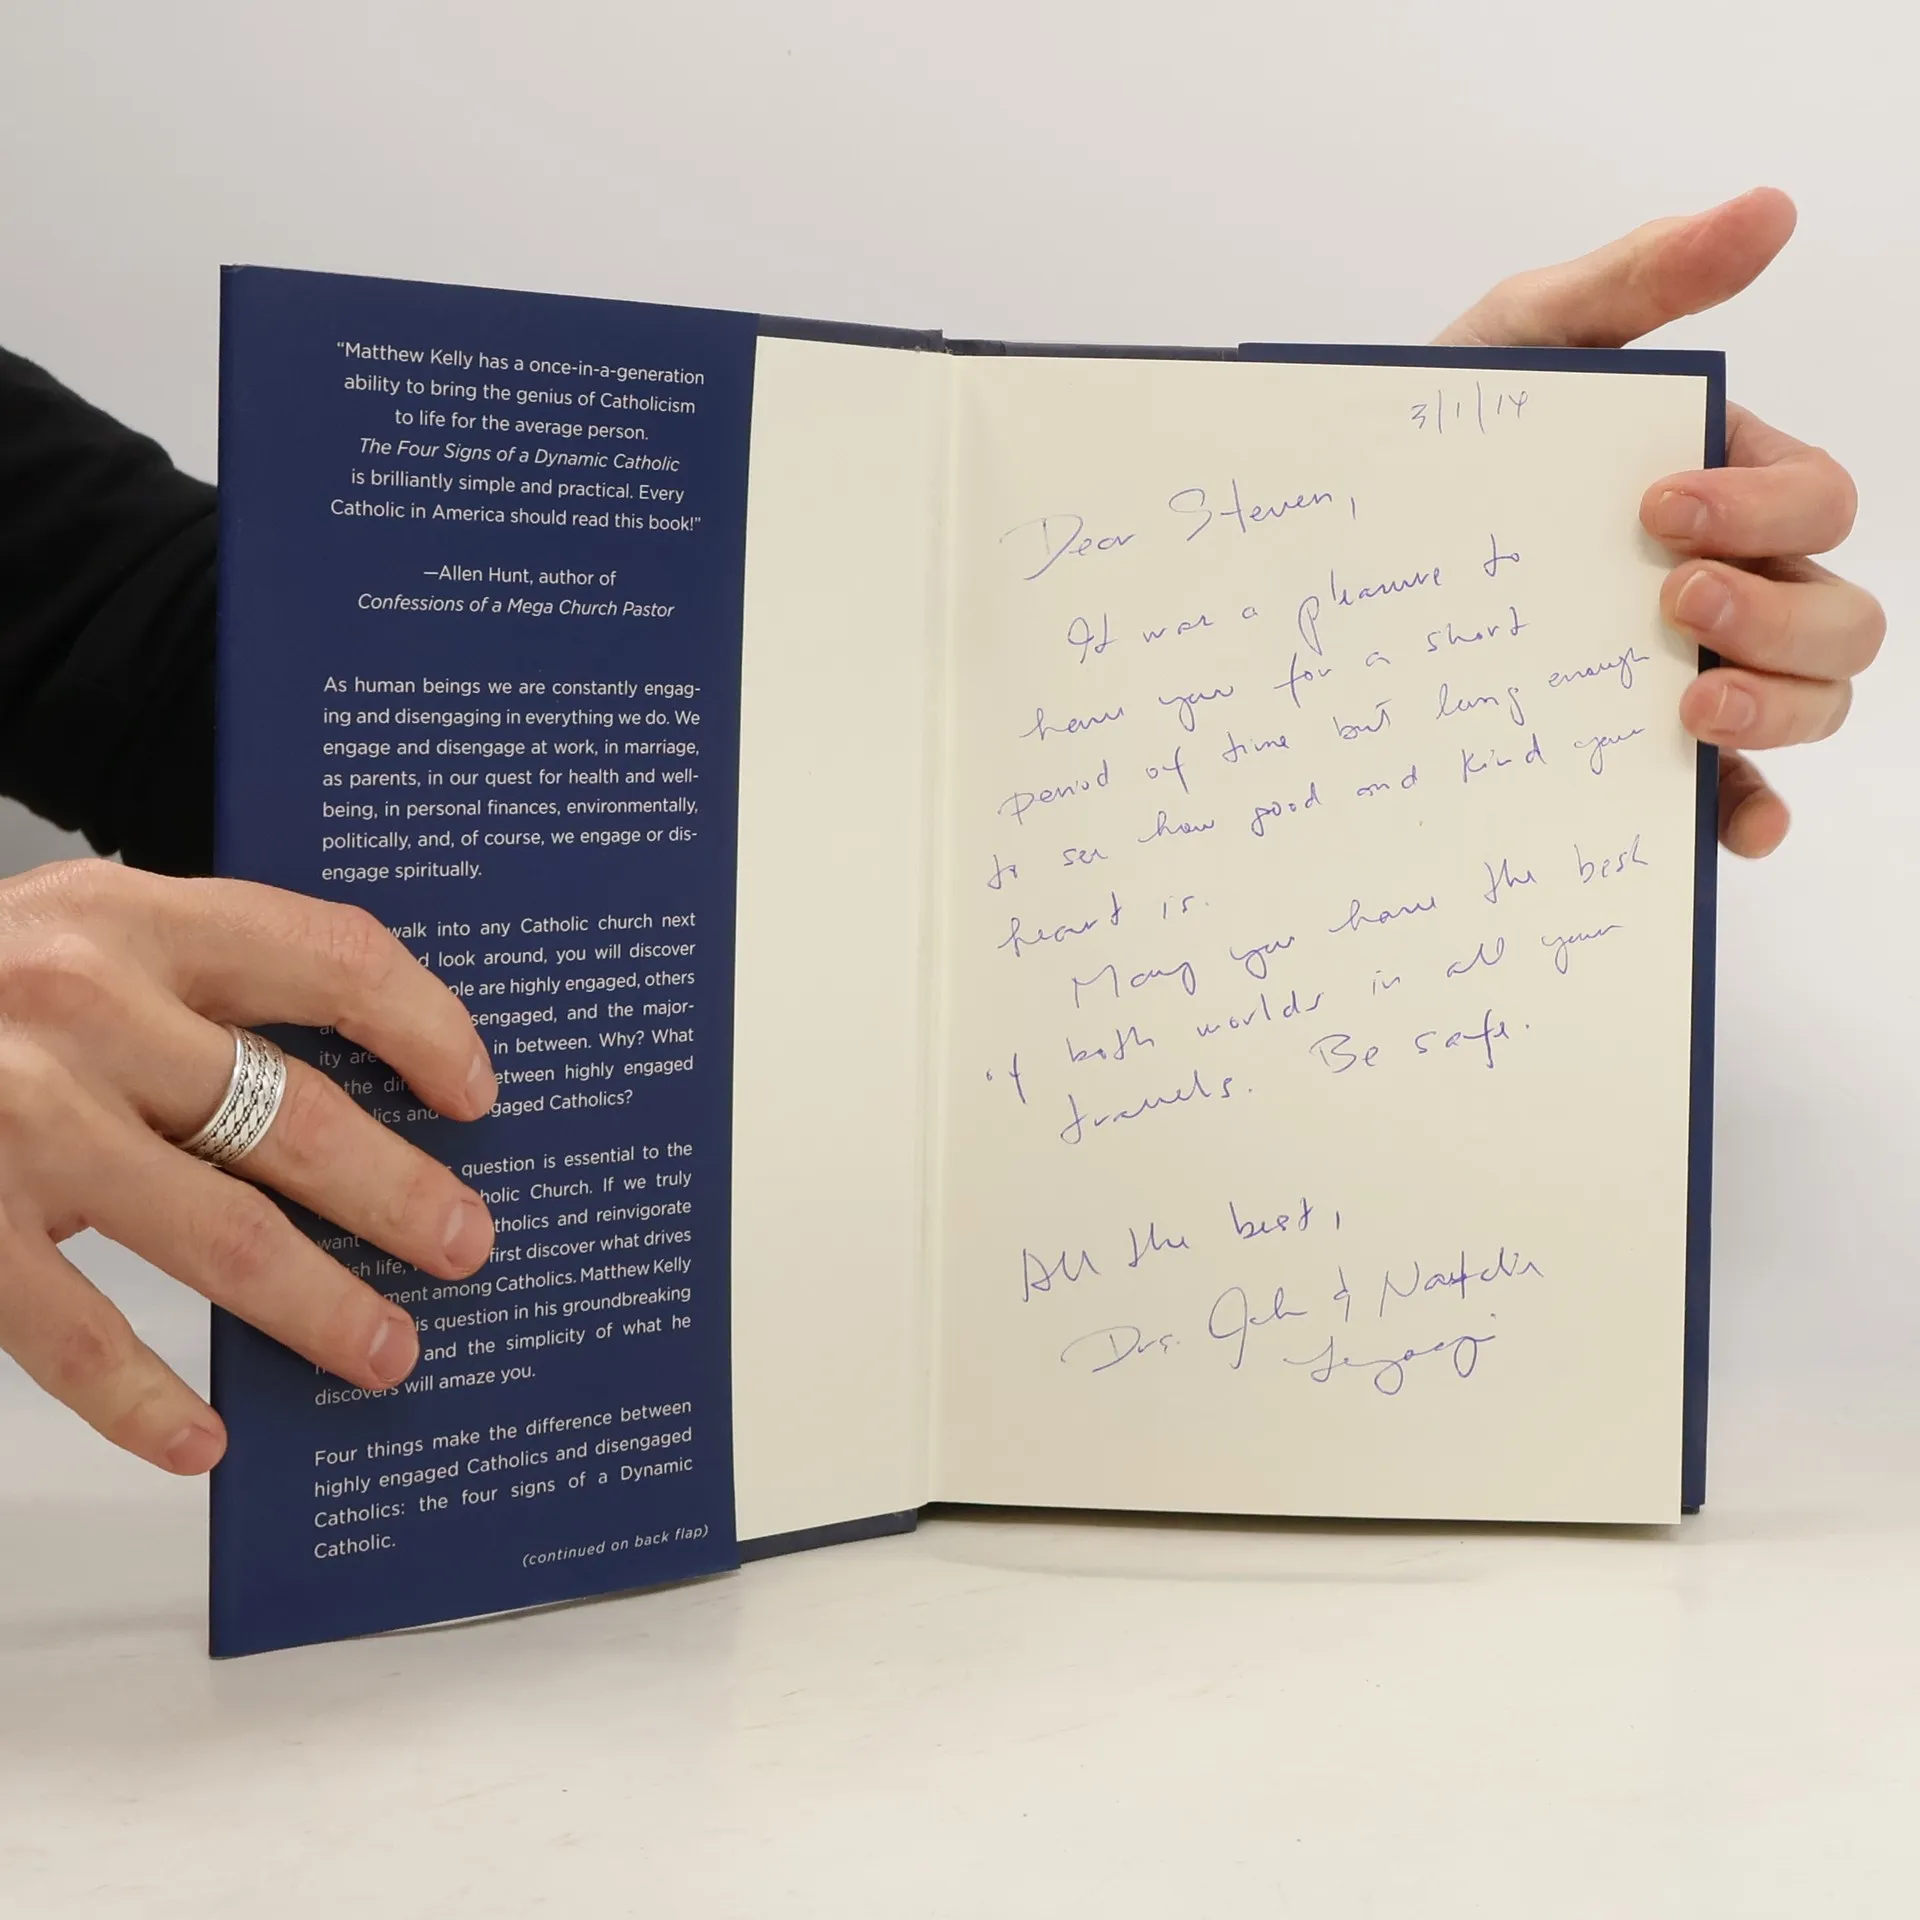 “Matthew Kelly has a once-in-a-generation
ability to bring the genius of Catholicism
to life for the average person.
The Four Signs of a Dynamic Catholic
is brilliantly simple and practical. Every
Catholic in America should read this book!”
—Allen Hunt, author of
Confessions of a Mega Church Pastor
As human beings we are constantly engag-
ing and disengaging in everything we do. We
engage and disengage at work, in marriage,
as parents, in our quest for health and well-
being, in personal finances, environmentally,
politically, and, of course, we engage or dis-
engage spiritually.
walk into any Catholic church next
look around, you will discover
are highly engaged, others
and the major-
ity are in between. Why? What
the between highly engaged
and Catholics?
question is essential to the
Church. If we truly
want and reinvigorate
life, first discover what drives
among Catholics. Matthew Kelly
question in his groundbreaking
and the simplicity of what he
discovers will amaze you.
Four things make the difference between
highly engaged Catholics and disengaged
Catholics: the four signs of a Dynamic
Catholic.
(continued on back flap)
3/1/14
Dear Steven,
It was a pleasure to
have you for a short
period of time but long enough
to see how good and kind your
heart is.
May you have the best
of both worlds in all your
travels. Be safe.
All the best,
Drs. John &